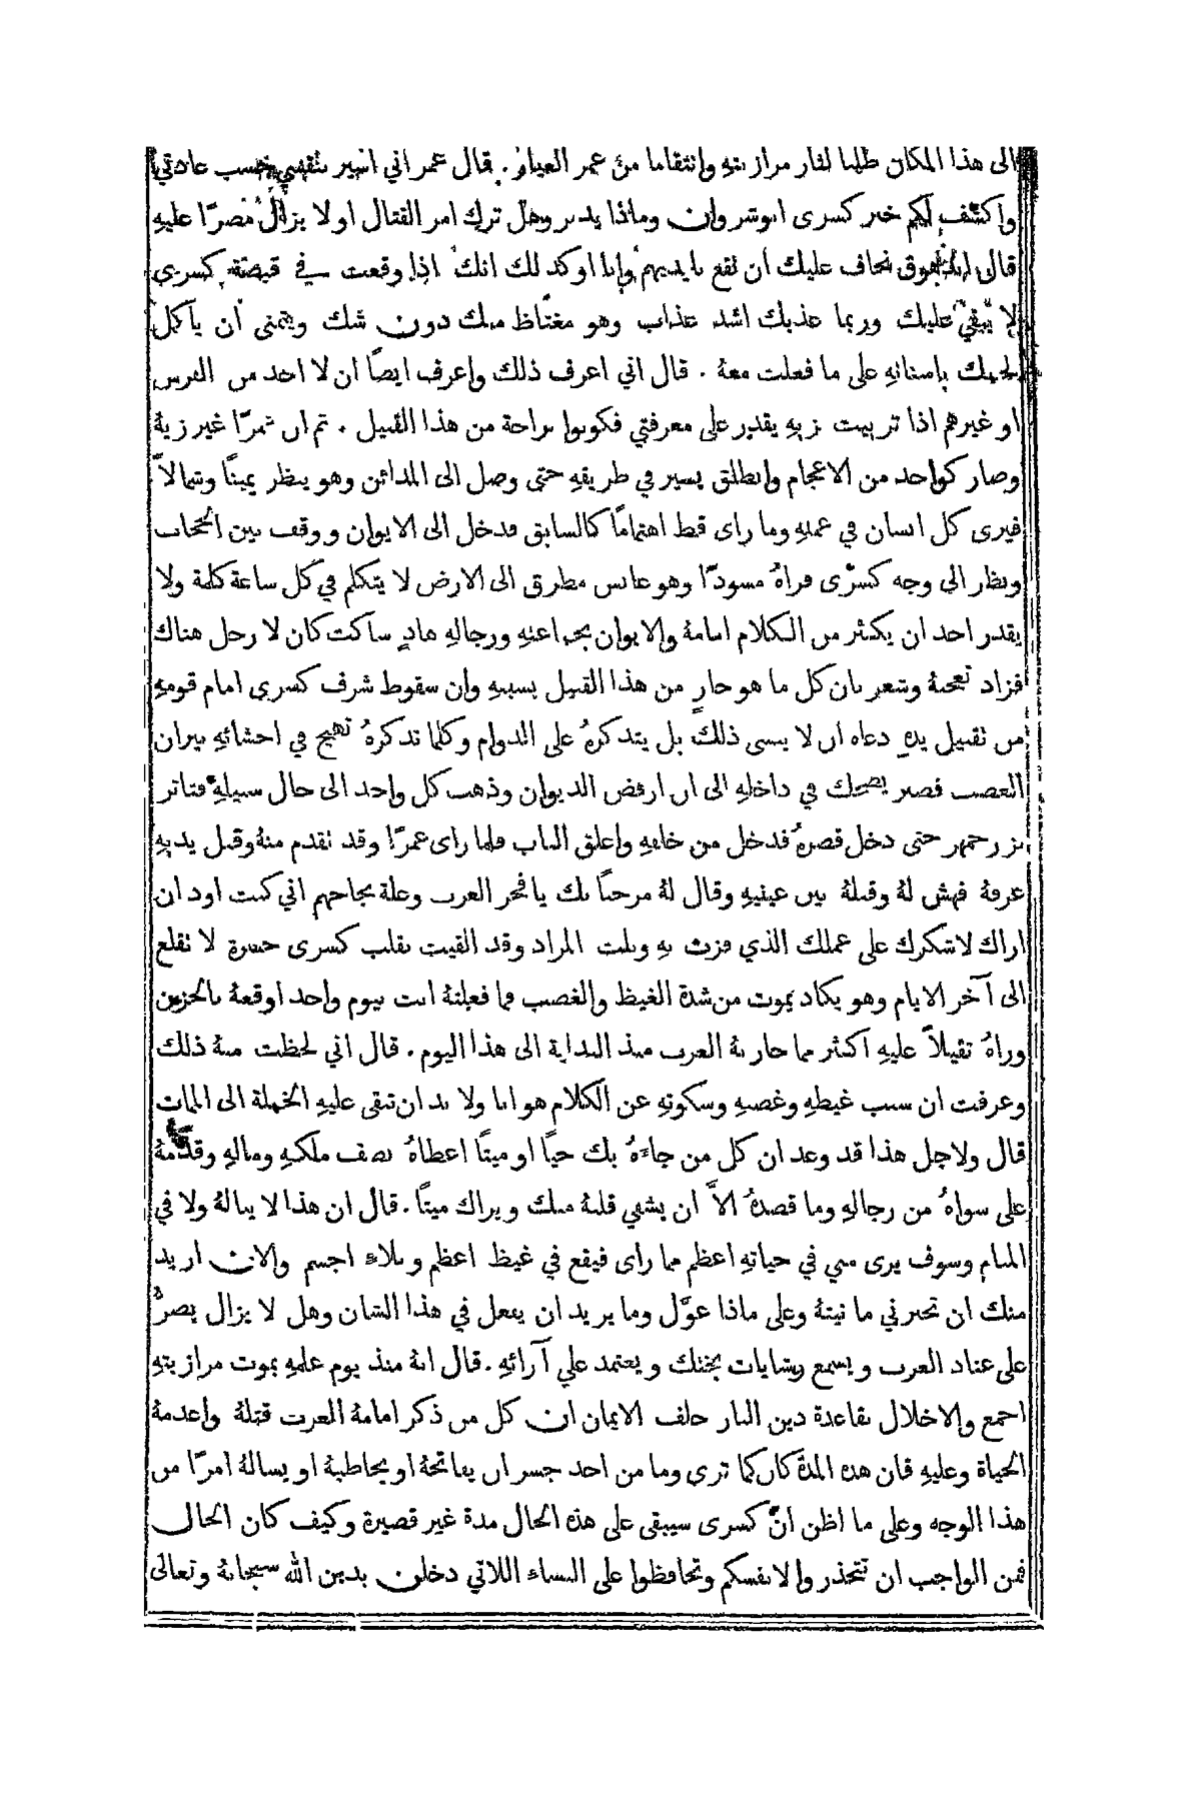 الى هذا المكان طلبا لثار مرازبته وانتقاما من عمر العيار. قال عمر اني اسير بنفسي حسب عادتي
واكشف لكم خبر كسرى انوشروان وماذا يدبر وهل ترك امر القتال او لا يزال مصرّا عليهِ
قال اندهوق نخاف عليك ان تقع بايديهم وانا اوكد لك انك اذا وقعت في قبضة كسرى
لا يبقي عليك وربما عذبك اشد عذاب وهو مغتاظ منك دون شك ويتمنى ان ياكل
لحمك باسنانهِ على ما فعلت معهُ . قال اني اعرف ذلك واعرف ايضًا ان لا احد من الفرس
او غيرهم اذا تربيت بزيهِ يقدر على معرفتي فكونوا براحة من هذا القبيل . ثم ان عمرًا غير زيهُ
وصار كواحد من الاعجام وانطلق يسير في طريقهِ حتى وصل الى المدائن وهو ينظر يمينًا وشمالاً
فيرى كل انسان في عملهِ وما راى قط اهتمامًا كالسابق فدخل الى الايوان ووقف بين الحجاب
ونظر الى وجه كسرى فراهُ مسودًا وهو عابس مطرق الى الارض لا يتكلم في كل ساعة كلمة ولا
يقدر احد ان يكثر من الكلام امامهُ والايوان بجماعتهِ ورجالهِ هادٍ ساكت كان لا رجل هناك
فزاد تعجبهُ وشعر بان كل ما هو جارٍ من هذا القبيل بسببهِ وان سقوط شرف كسرى امام قومهِ
من تقبيل يدهِ دعاه ان لا ينسى ذلك بل يتذكرهُ على الدوام وكلما تذكرهُ تهيج في احشائهِ نيران
الغضب فصبر يضحك في داخلهِ الى ان ارفض الديوان وذهب كل واحد الى حال سبيلهِ فتاثر
بزرجمهر حتى دخل قصرهُ فدخل من خلفهِ واغلق الباب فلما راى عمرًا وقد تقدم منهُ وقبل يديهِ
عرفهُ فهش لهُ وقبلهُ بين عينيهِ وقال لهُ مرحبًا بك يا فخر العرب وعلة نجاحهم اني كنت اود ان
اراك لاشكرك على عملك الذي فزت بهِ ونلت المراد وقد القيت بقلب كسرى حسرة لا تقلع
الى آخر الايام وهو يكاد يموت من شدة الغيظ والغضب فما فعلتهُ انت بيوم واحد اوقعهُ بالحزن
وراهُ ثقيلاً عليهِ اكثر مما حاربتهُ العرب منذ البداية الى هذا اليوم . قال اني لحظت منهُ ذلك
وعرفت ان سبب غيظهِ وغضبهِ وسكوتهِ عن الكلام هو انا ولا بد ان تبقى عليهِ الخجلة الى الممات
قال ولاجل هذا قد وعد ان كل من جاءهُ بك حيًا او ميتًا اعطاهُ نصف ملكهِ ومالهِ وقدمهُ
على سواهُ من رجالهِ وما قصدهُ الاَّ ان يشفي قلبهُ منك ويراك ميتًا . قال ان هذا لا ينالهُ ولا في
المنام وسوف يرى مني في حياتهِ اعظم مما راى فيقع في غيظ اعظم وبلاء اجسم والان اريد
منك ان تخبرني ما نيتهُ وعلى ماذا عوَّل وما يريد ان يفعل في هذا الشان وهل لا يزال يصرُّ
على عناد العرب ويسمع وشايات بختك ويعتمد على آرائهِ . قال انهُ منذ يوم علمهِ بموت مرازبتهِ
اجمع والاخلال بقاعدة دين النار حلف الايمان ان كل من ذكر امامهُ العرب قتلهُ واعدمهُ
الحياة وعليهِ فان هذه المدة كان كما ترى وما من احد جسر ان يفاتحهُ او يخاطبهُ او يسالهُ امرًا من
هذا الوجه وعلى ما اظن انَّ كسرى سيبقى على هذه الحال مدة غير قصيرة وكيف كان الحال
فمن الواجب ان تتحذروا لانفسكم وتحافظوا على النساء اللاتي دخلن بدين الله سبحانهُ وتعالى